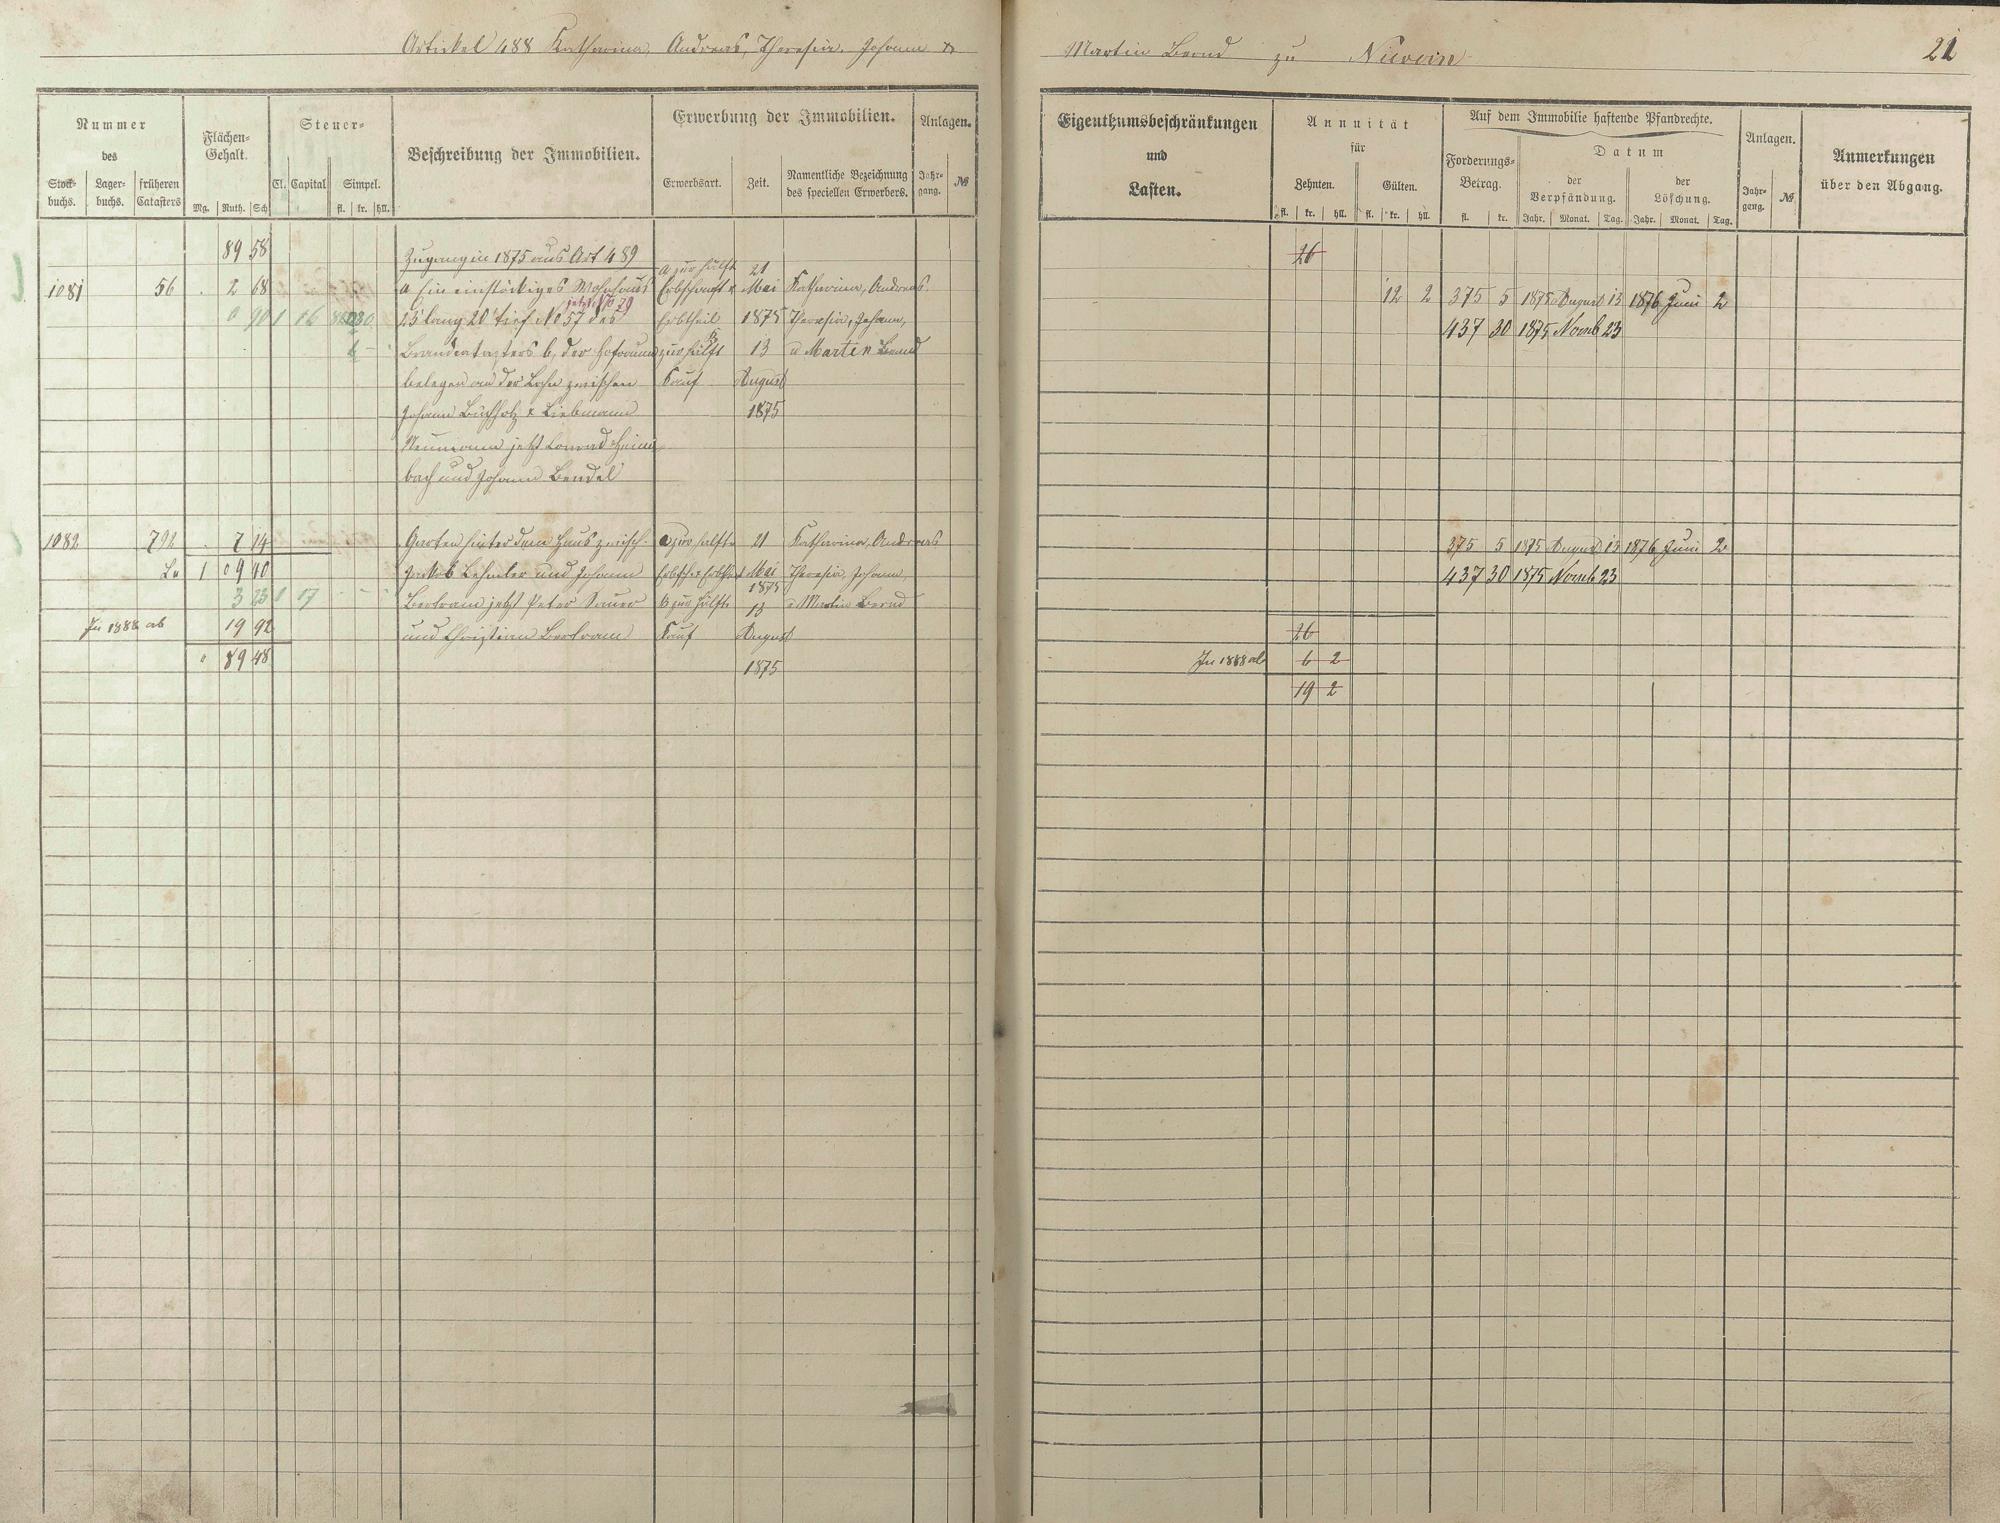 Artickel 488 Katharina, Andreas, Theresia, Johann &
Martin Bernd zu Nievern
21
Nummer
des
Stock-
buchs.
Lager-
buchs.
früheren
Catasters
Flächen-
Gehalt.
Mg. Ruth. Sch
Steuer-
Cl. Capital Simpel.
fl. kr. hll.
Beschreibung der Immobilien.
Erwerbung der Immobilien.
Erwerbsart. Zeit.
Namentliche Bezeichnung
des speciellen Erwerbers.
Anlagen.
Jahr-
gang. №
Eigenthumsbeschränkungen
und
Lasten.
Annuität
für
Zehnten. Gülten.
fl. kr. hll. fl. kr. hll.
Auf dem Immobilie haftende Pfandrechte.
Forderungs-
Betrag.
fl. kr.
Datum
der
Verpfändung.
Jahr. Monat. Tag.
der
Löschung.
Jahr. Monat. Tag.
Anlagen.
Jahr-
gang. №
Anmerkungen
über den Abgang.
89 58 Zugang in 1875 aus Art 489 26
a zur Hälft 21
1081 56 . 2 68 a Ein einstöckiges Wohnhaus Erbschaft & Mai Katharina, Andreas 12 2 375 5 1875 August 13 1876 Juni 2
jetzt No 79
0 90 1 16 25' lang 20' tief No 57 des Erbtheil 1875 Theresia, Johann, 437 30 1875 Novmb 23
Brandcatasters b, der Hofraum b zur Hälft 13 u Martin Bernd
belegen an der Lahn zwischen Kauf August
Johann Buchholz & Liebmann 1875
Neumann jetzt Conrad Heim
bach und Johann Bendel
1082 792 . 7 14 Garten hinter dem Haus zwisch. a zur Hälfte 21 Katharina, Andreas 375 5 1875 August 13 1876 Juni 2
1 0 9 10 Jakob Lehmler und Johann Erbsch & Erbthl Mai Theresia, Johann, 437 30 1875 Novmb 23
1875
3 23 17 Bertram jetzt Peter Sauer b zur Hälfte 13 u Martin Bernd
In 1888 ab 19 92 und Christian Bertram Kauf August 26
" 89 48 1875 In 1888 ab 6 2
19 2